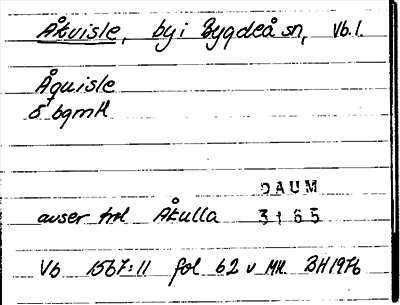 Åkvisle, by i Bygdeå sn, Vb. l.
Åquisle
8 bgmH
DAUM
avser trol Åkulla 3165
Vb 1567:11 fol 62 v MH. BH 1976